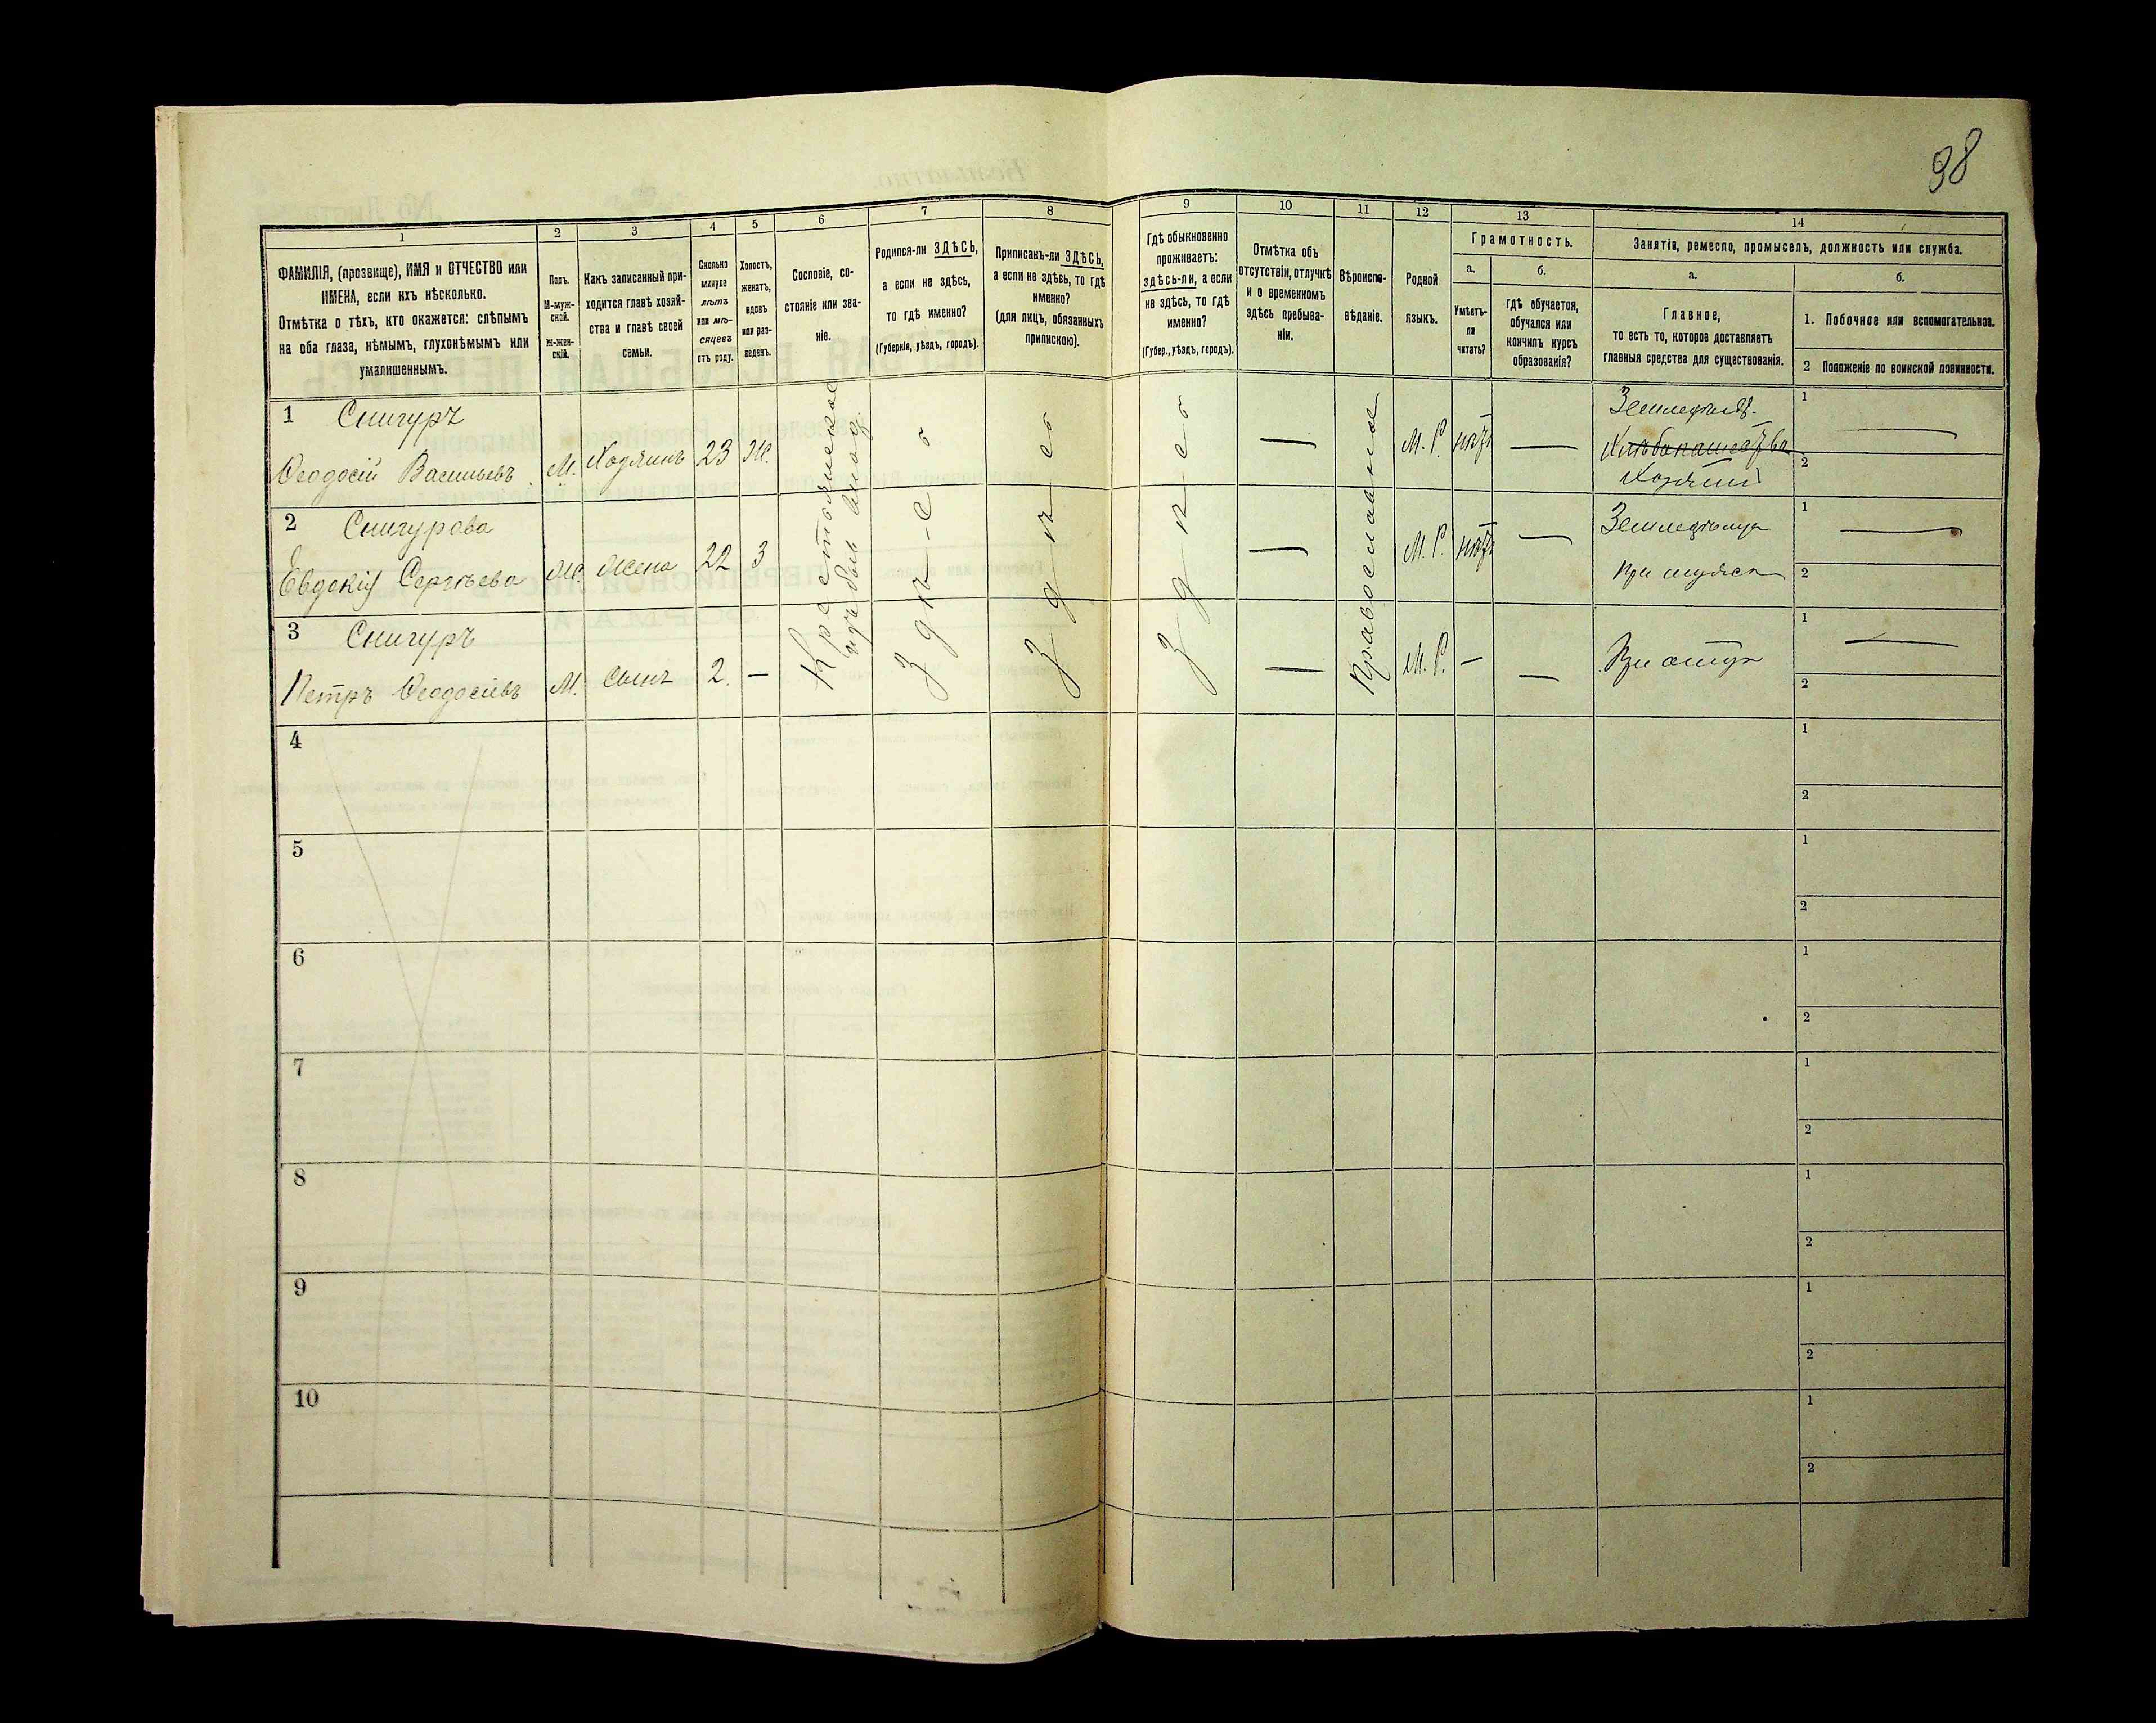 98
1
2
3
4
5
6
7
8
9
10
11
12
13
14
ФАМИЛІЯ, (прозвище), ИМЯ и ОТЧЕСТВО или
ИМЕНА, если ихъ нѣсколько.
Отмѣтка о тѣхъ, кто окажется: слѣпымъ
на оба глаза, нѣмымъ, глухонѣмымъ или
умалишеннымъ.
Полъ.
М-муж-
ской.
ж-жен-
скій.
Какъ записанный при-
ходится главѣ хозяй-
ства и главѣ своей
семьи.
Сколько
минуло
лѣтъ
или мѣ-
сяцевъ
отъ роду.
Холостъ,
женатъ,
вдовъ
или раз-
веденъ.
Сословіе, со-
стояніе или зва-
ніе.
Родился-ли ЗДѢСЬ,
а если не здѣсь,
то гдѣ именно?
(Губернія, уѣздъ, городъ).
Приписанъ-ли ЗДѢСЬ,
а если не здѣсь, то гдѣ
именно?
(для лицъ, обязанныхъ
припискою).
Гдѣ обыкновенно
проживаетъ:
здѣсь-ли, а если
не здѣсь, то гдѣ
именно?
(Губер., уѣздъ, городъ).
Отмѣтка объ
отсутствіи, отлучкѣ
и о временномъ
здѣсь пребыва-
ніи.
Вѣроиспо-
вѣданіе.
Родной
языкъ.
Грамотность.
а.
б.
Умѣетъ-
ли
читать?
гдѣ обучается,
обучался или
кончилъ курсъ
образованія?
Занятіе, ремесло, промыселъ, должность или служба.
а.
б.
Главное,
то есть то, которое доставляетъ
главныя средства для существованія.
1. Побочное или вспомогательное.
2 Положеніе по воинской повинности.
1 Снигуръ
Ѳеодосій Васильевъ М. Хозяинъ 23 Ж.
Крестьянское
Здѣ-сь
Здѣсь
Здѣсь
—
Православное
М. Р. нѣтъ —
Земледѣл.
Хлѣбопашество
Хозяинъ
1
2
2 Снигурова
Евдокія Сергѣева Ж. Жена 22 З
— М. Р. нѣтъ —
при мужѣ
1
2
3 Снигуръ
Петръ Ѳеодосіевъ М. сынъ 2. —
— М. Р. — —
При отцѣ
1
2
4
1
2
5
1
2
6
1
2
7
1
2
8
1
2
9
1
2
10
1
2